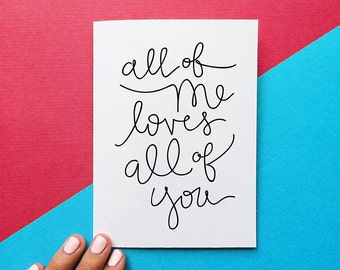 all of
me
loves
all of
you